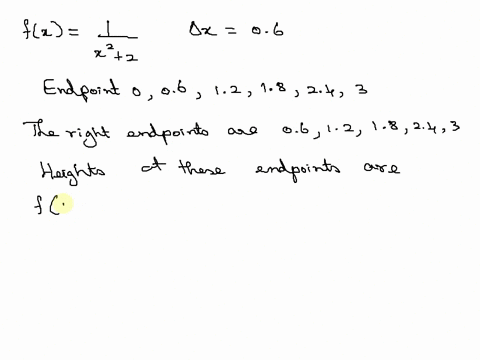 f(x) = 1/(x²+2) Δx = 0.6
Endpoint 0, 0.6, 1.2, 1.8, 2.4, 3
The right endpoints are 0.6, 1.2, 1.8, 2.4, 3
Heights at these endpoints are
f(.